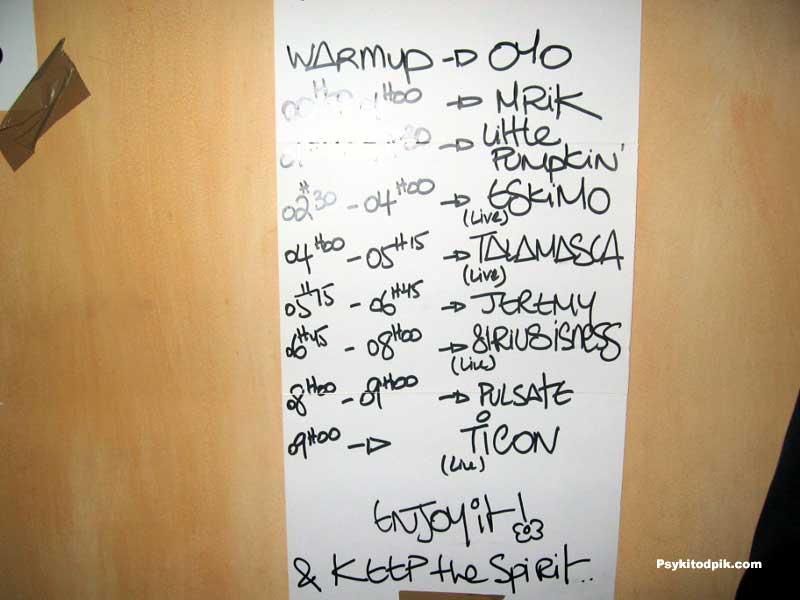 WARMUP -> OYO
00H00 - 1H00 -> MRiK
30 -> Little
PUMPKiN'
02H30 - 04H00 -> ESKiMO
(Live)
04H00 - 05H15 -> TALAMASCA
(Live)
05H15 - 06H45 -> JEREMY
06H45 - 08H00 -> SIRIUSiSNESS
(Live)
08H00 - 09H00 -> PULSATE
09H00 -> TiCON
(Live)
ENJOY it!
& KEEP the Spirit..
Psykitodpik.com